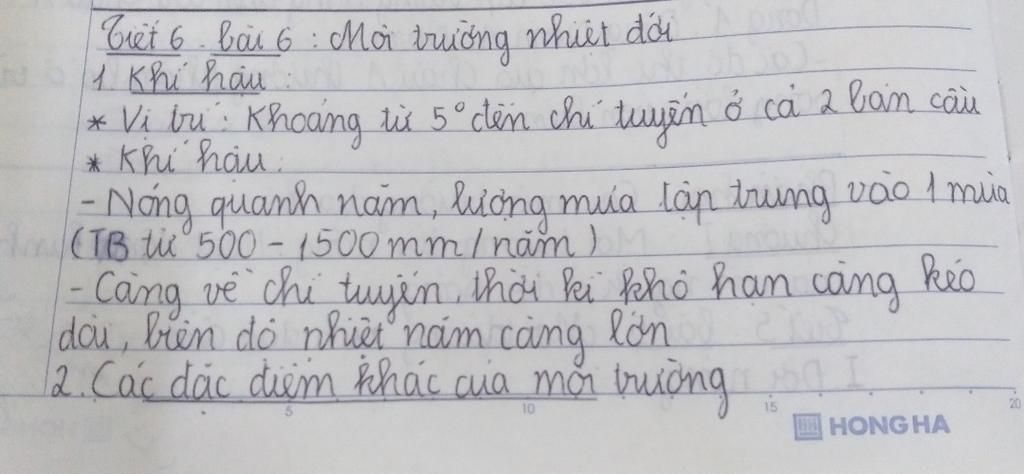 Tiết 6. Bài 6: Môi trường nhiệt đới
1. Khí hậu
* Vị trí: Khoảng từ 5° đến chí tuyến ở cả 2 bán cầu
* Khí hậu:
- Nóng quanh năm, lượng mưa tập trung vào 1 mùa
(TB từ 500 - 1500 mm/năm)
- Càng về chí tuyến, thời kì khô hạn càng kéo
dài, biên độ nhiệt năm càng lớn
2. Các đặc điểm khác của môi trường
5 10 15 20
HONG HA